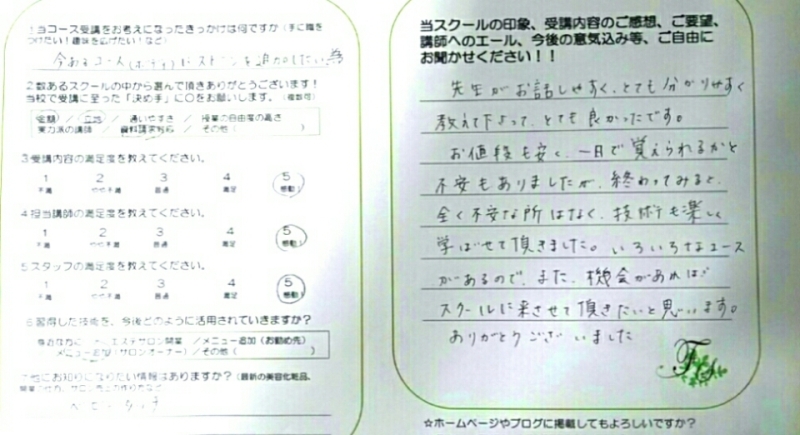 1.当コース受講をお考えになったきっかけは何ですか(手に職を
つけたい!趣味を広げたい!など)
今あるコース(ボディ)にストーンを追加したい為
2.数あるスクールの中から選んで頂きありがとうございます!
当校で受講に至った「決め手」に〇をお願いします。(複数可)
金額 / 立地 / 通いやすさ / 授業の自由度の高さ
実力派の講師 / 資料請求対応 / その他( )
3.受講内容の満足度を教えてください。
1 2 3 4 5
不満 やや不満 普通 満足 感動!
4.担当講師の満足度を教えてください。
1 2 3 4 5
不満 やや不満 普通 満足 感動!
5.スタッフの満足度を教えてください。
1 2 3 4 5
不満 やや不満 普通 満足 感動!
6.習得した技術を、今後どのように活用されていきますか?
エステサロン開業 /メニュー追加(お勤め先)
メニュー追加(サロンオーナー) /その他( )
7.他にお知りになりたい情報はありますか?(最新の美容化粧品、
当スクールの印象、受講内容のご感想、ご要望、
講師へのエール、今後の意気込み等、ご自由に
お聞かせください!!
先生がお話しやすく、とても分かりやすく
教えて下さって、とても良かったです。
お値段も安く、一日で覚えられるかと
不安もありましたが、終わってみると、
全く不安な所はなく、技術も楽しく
学ばせて頂きました。いろいろなコース
があるので、また、機会があれば
スクールに来させて頂きたいと思います。
ありがとうございました
☆ホームページやブログに掲載してもよろしいですか?